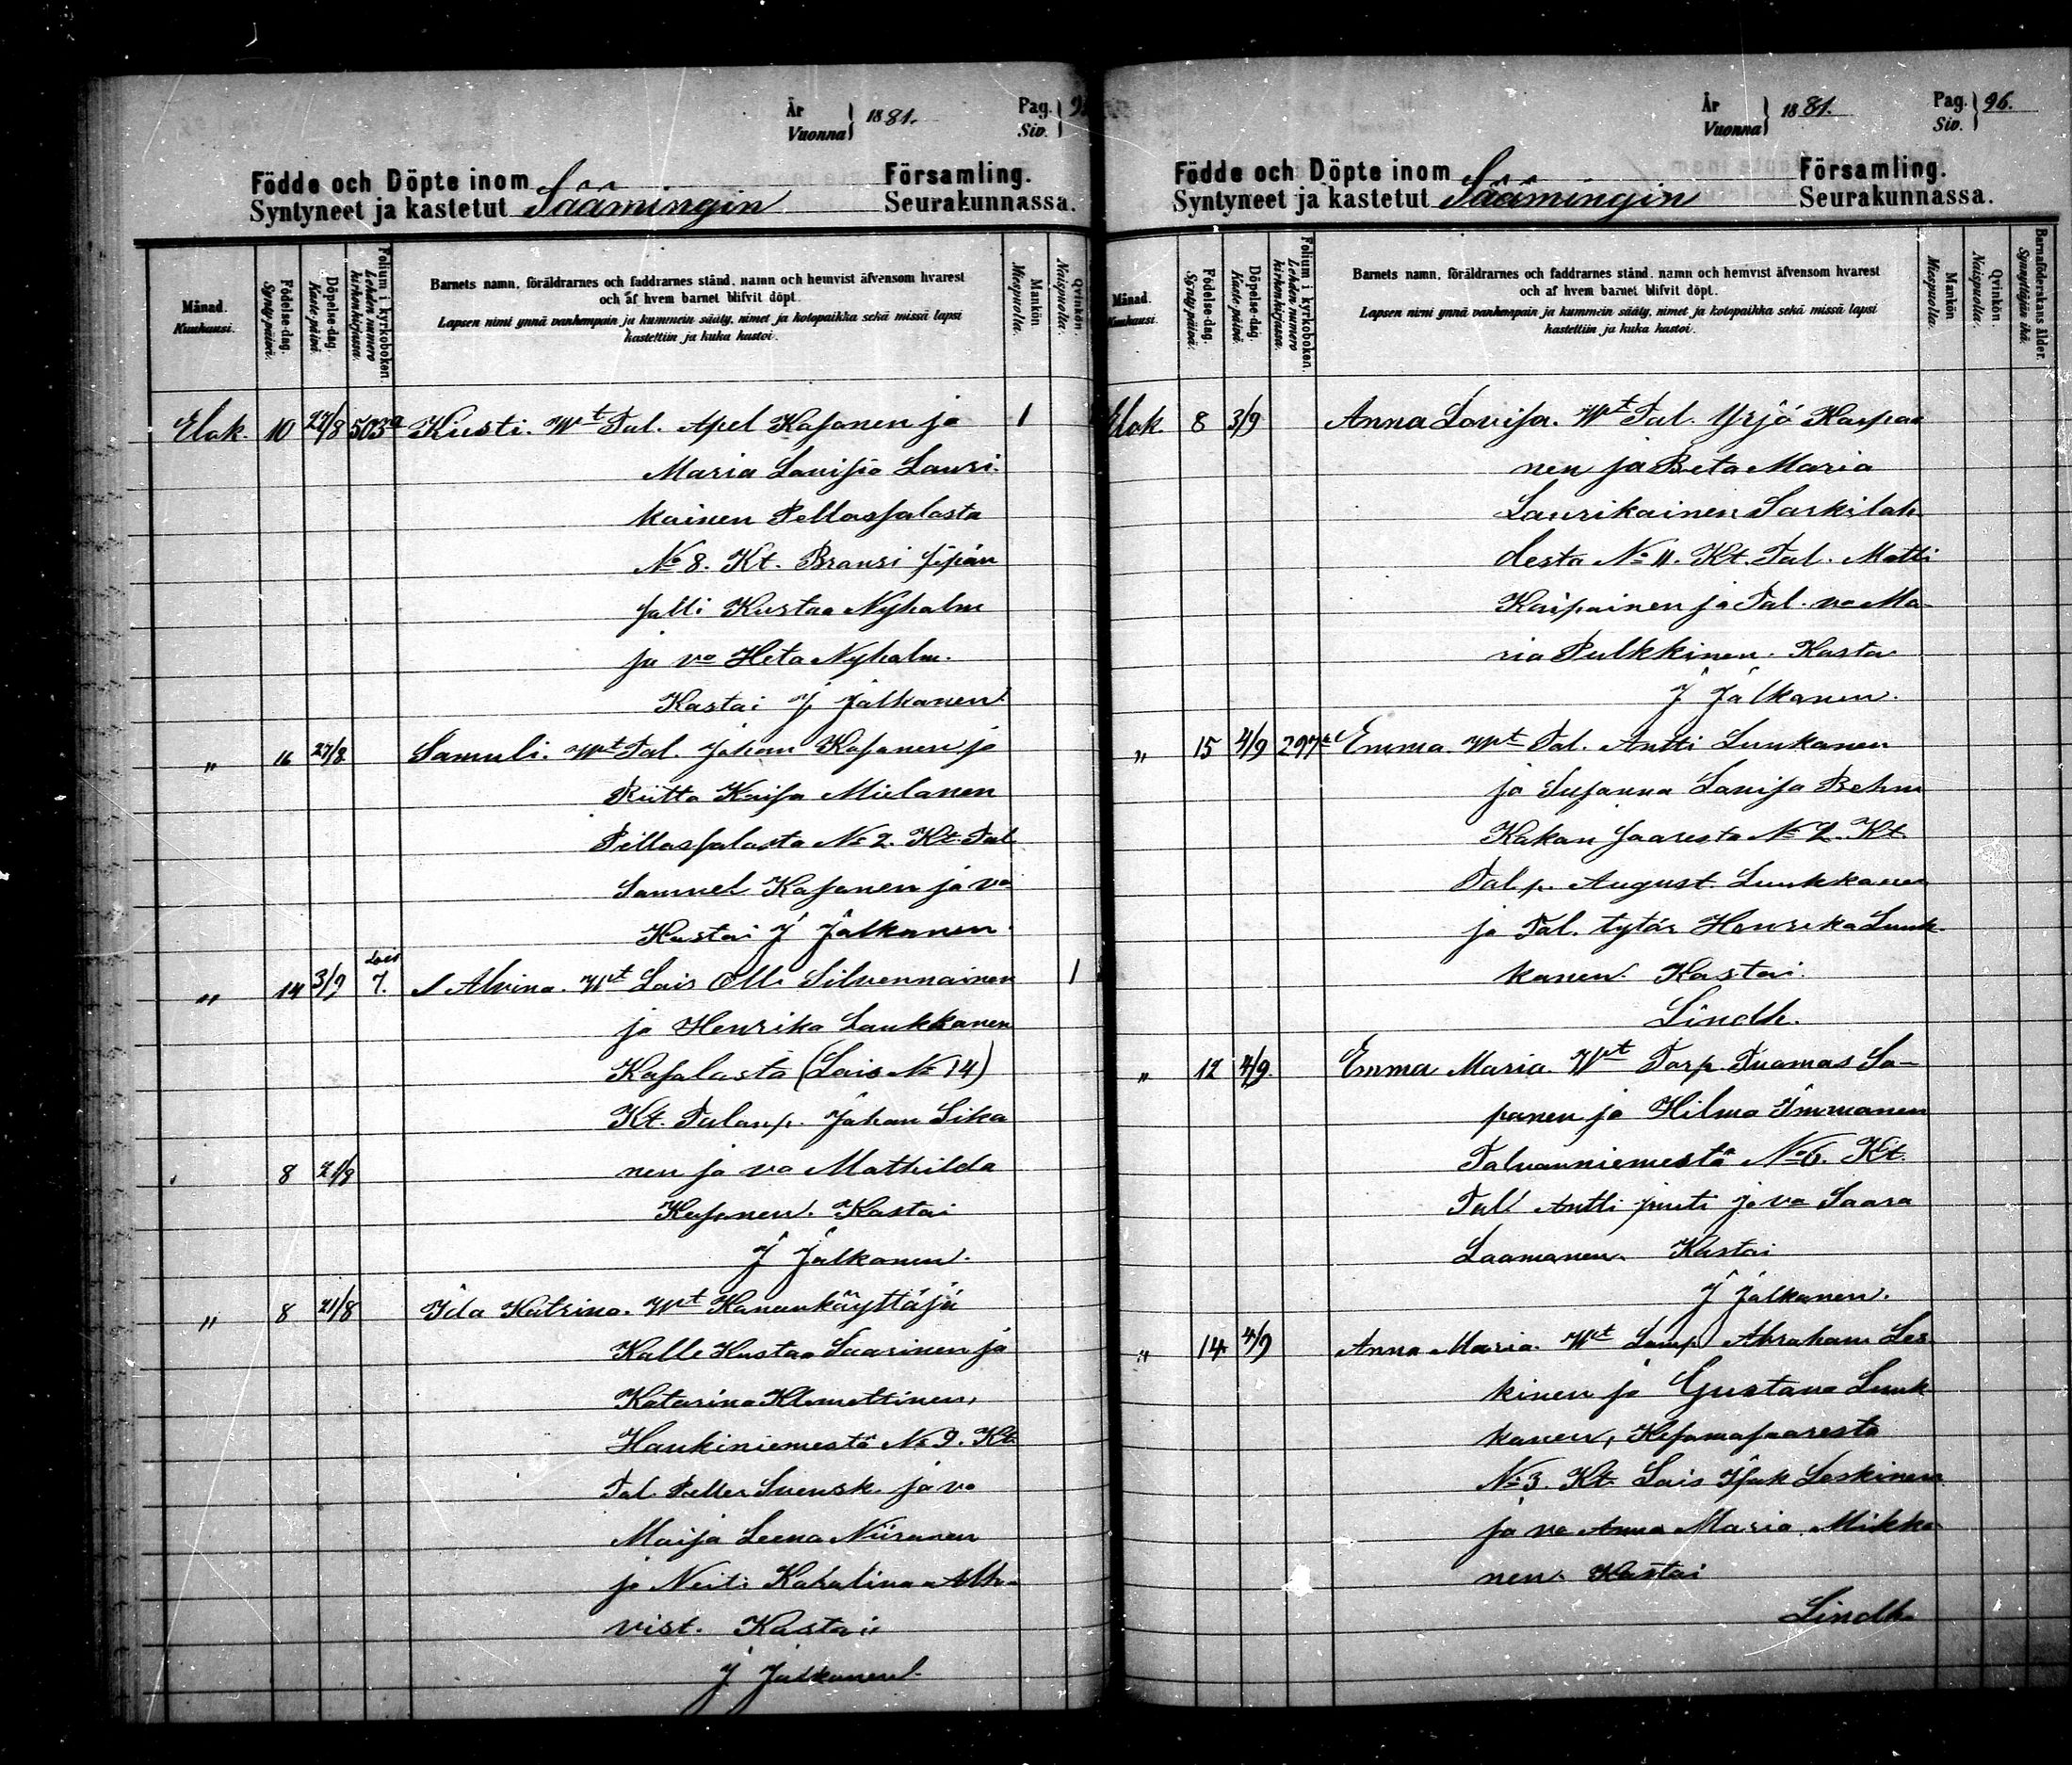 År
Vuonna 1881.
Pag.
Siv.
Födde och Döpte inom Församling.
Syntyneet ja kastetut Säämingin Seurakunnassa.
Månad.
Kuukausi.
Födelse-dag.
Synty-päivä.
Döpelse-dag.
Kaste-päivä.
Folium i kyrkoboken.
Lehden numero kirkonkirjassa.
Barnets namn, föräldrarnes och faddrarnes stånd, namn och hemvist äfvensom hvarest
och af hvem barnet blifvit döpt.
Lapsen nimi ynnä vanhempain ja kummein sääty, nimet ja kotopaikka sekä missä lapsi
kastettiin ja kuka kastoi.
Mankön
Miespuolta.
Qvinkön.
Naispuolta.
Elok. 10 27/8 503a Kusti. Wt Tal. Apel Kosonen ja 1
Maria Lovisa Lauri-
kainen Pellossalosta
No 8. Kt.
Kustaa Nyholm
ja vo Heta Nyholm.
Kastoi J Jalkanen.
" 16 27/8 Samuli. Wt Tal. Johan Kosonen ja
Riitta Kaisa Mielonen
Pellossalosta No 2. Kt. Tal.
Samuel Kosonen ja vo
Kastoi J Jalkanen.
" 14 3/9 Lois 7. Alvina. Wt Lois Olli Silvennoinen 1
ja Henrika Laukkanen
Kosolasta (Lois No 14)
Kt. Talonp. Johan Sika
8 21/8 nen ja vo Mathilda
Kosonen. Kastoi
J Jalkanen.
" 8 21/8 Ida Katrina. Wt Koneenkäyttäjä
Kalle Kustaa Saarinen ja
Katarina Klemettinen,
Haukiniemestä No 9. Kt.
Tal. Petter Svensk ja vo
Maija Leena Niiranen
ja Neiti Karolina Alh-
vist. Kastoi
J Jalkanen.
År
Vuonna 1881.
Pag.
Siv. 96.
Födde och Döpte inom Församling.
Syntyneet ja kastetut Säämingin Seurakunnassa.
Månad.
Kuukausi.
Födelse-dag.
Synty-päivä.
Döpelse-dag.
Kaste-päivä.
Folium i kyrkoboken.
Lehden numero kirkonkirjassa.
Barnets namn, föräldrarnes och faddrarnes stånd, namn och hemvist äfvensom hvarest
och af hvem barnet blifvit döpt.
Lapsen nimi ynnä vanhempain ja kummein sääty, nimet ja kotopaikka sekä missä lapsi
kastettiin ja kuka kastoi.
Mankön
Miespuolta.
Qvinkön.
Naispuolta.
Barnaföderskans ålder.
Synnyttäjäin ikä.
Elok. 8 3/9 Anna Lovisa. Wt Tal. Yrjö Kaipai
nen ja Beta Maria
Laurikainen Särkilah
desta No 11. Kt. Tal. Matti
Kaipainen ja Tal. vo Ma-
ria Pulkkinen. Kastoi
J Jalkanen.
" 15 4/9 297 Emma. Wt Tal. Antti Luukanen
ja Susanna Lovisa Behm
Kokonsaaresta No 2. Kt
Tal. p. August Luukkanen
ja Tal. tytär Henrika Luuk-
kanen. Kastoi.
Lindh.
" 12 4/9. Emma Maria. Wt Torp. Tuomas So-
panen ja Hilma Immonen
Talvonniemestä No 6. Kt.
Tal. Antti ja vo Saara
Laamanen. Kastoi
J Jalkanen.
" 14 4/9 Anna Maria. Wt Lamp. Abraham Les
kinen ja Gustava Luuk
kanen, Kesamosaaresta
No 3. Kt. Lois Isak Leskinen
ja vo Anna Maria Mikko
nen. Kastoi
Lindh.